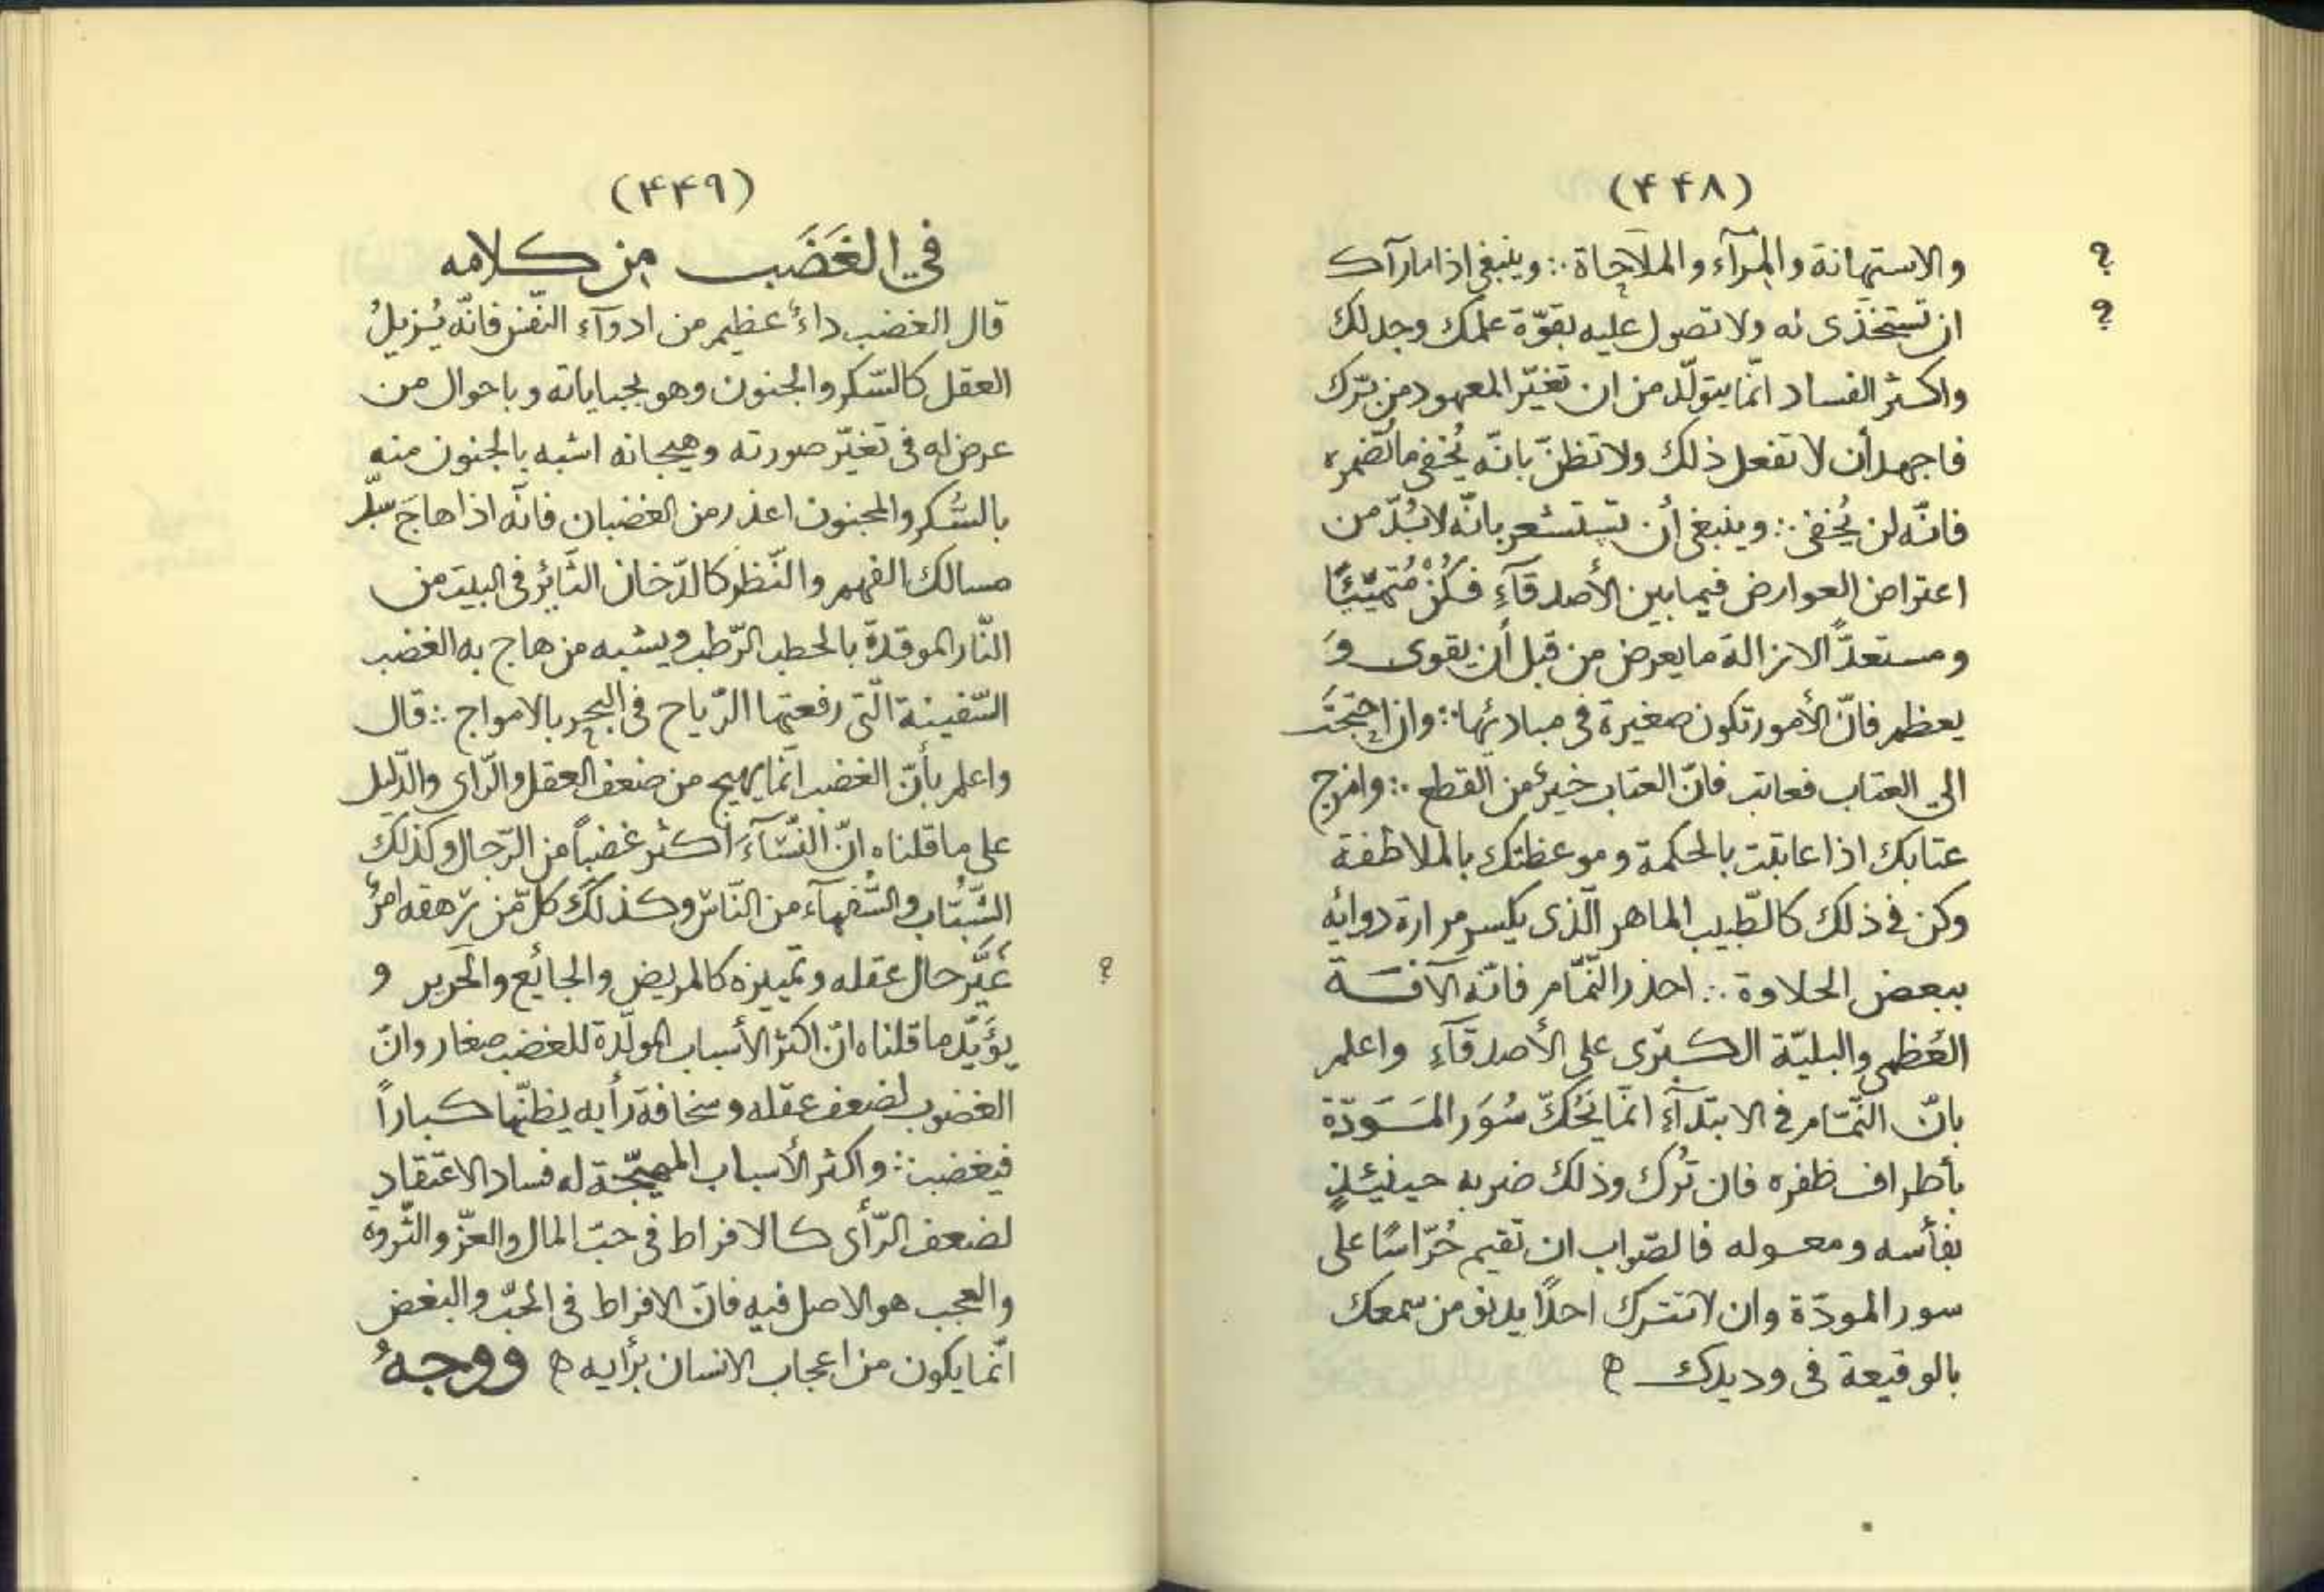 (۴۴۸)
والاستهانة والمرآء والملاحاة ∴ وينبغى اذا مارآك
ان تستخذى له ولا تصول عليه بقوّة علمك وجدلك
واكثر الفساد انّما يتولّد من ان تغيّر المعهود من برّك
فاجهد أن لا تفعل ذلك ولا تظنّ بانّه يُخفى ما تُضمره
فانّه لن يُخفى ∴ وينبغى أن تستشعر بانّه لا بُدّ من
اعتراض العوارض فيما بين الأصدقآءِ فكُنْ مُتهيّئًا
ومستعدًّا لازالة ما يعرض من قبل أن يقوى وَ
يعظم فانّ الأمور تكون صغيرة فى مباديها ∴ وان احتجتَ
الى العتاب فعاتب فانّ العتاب خيرٌ من القطع ∴ وامزج
عتابك اذا عاتبت بالحكمة وموعظتك بالملاطفة
وكن فى ذلك كالطّبيب الماهر الّذى يكسر مرارة دوائه
ببعض الحلاوة ∴ احذر النّمّام فانّه الآفة
العُظمى والبليّة الكبرى على الأصدقآءِ واعلم
بانّ النّمّام فى الابتدآءِ انّما يَحُكّ سُوَر المَسَوَدّة
بأطراف ظفره فان تُرك وذلك ضربه حينئذٍ
بفأسه ومعوله فالصّواب ان تقيم حُرّاسًا على
سور المودّة وان لا تترك احدًا يدنو من سمعك
بالوقيعة فى وديدك ه
؟
؟
(۴۴۹)
في الغَضَب من كلامه
قال الغضب داءٌ عظيم من ادوآءِ النّفس فانّه يُزيلُ
العقل كالسّكر والجنون وهو بجناياته وباحوال من
عرض له فى تغيّر صورته وهيجانه اشبه بالجنون منه
بالسُّكر والمجنون اعذر من الغضبان فانّه اذا هاجَ سدّ
مسالك الفهم والنّظر كالدّخان الثّائر فى البيت من
النّار الموقدة بالحطب الرّطب ويشبه من هاج به الغضب
السّفينة الّتى رفعتها الرّياح فى البحر بالامواج ∴ قال
واعلم بأنّ الغضب انّما يهيج من ضعف العقل والرّاى والدّليل
على ما قلناه انّ النّسَآءَ أكثر غضباً من الرّجال وكذلك
الشّبّاب والسُّفهآء من النّاس وكذلك كلّ مَن ترهقه امرٌ
غيَّر حال عقله وتمييزه كالمريض والجايع والحرير و
يؤيّد ما قلناه انّ اكثر الأسباب المولّدة للغضب صغار وانّ
الغضوب لضعف عقله وسخافة رأيه يظنّها كباراً
فيغضب ∴ واكثر الأسباب المهيّجة له فساد الاعتقادِ
لضعف الرّأى كالافراط فى حبّ المال والعزّ والثّروه
والعجب هو الاصل فيه فانّ الافراط فى الحبّ والبغض
انّما يكون من اعجاب الانسان برأيه ه ووجهُ
؟